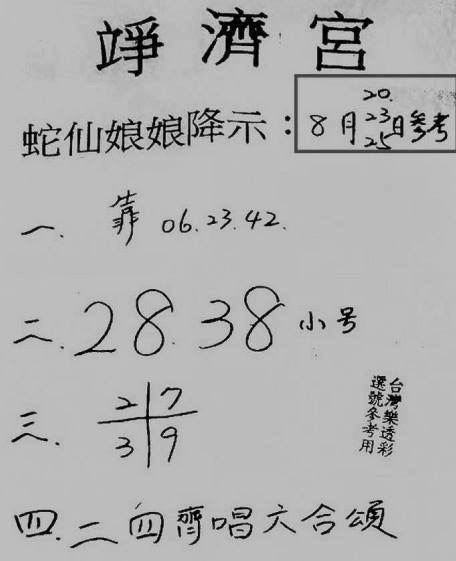 竫濟宮
蛇仙娘娘降示：8月20.23.25日參考
一. 靠 06.23.42.
二. 28.38小号
三. 2 7
3 9
台灣樂透彩
選號參考用
四.二四齊唱六合頌